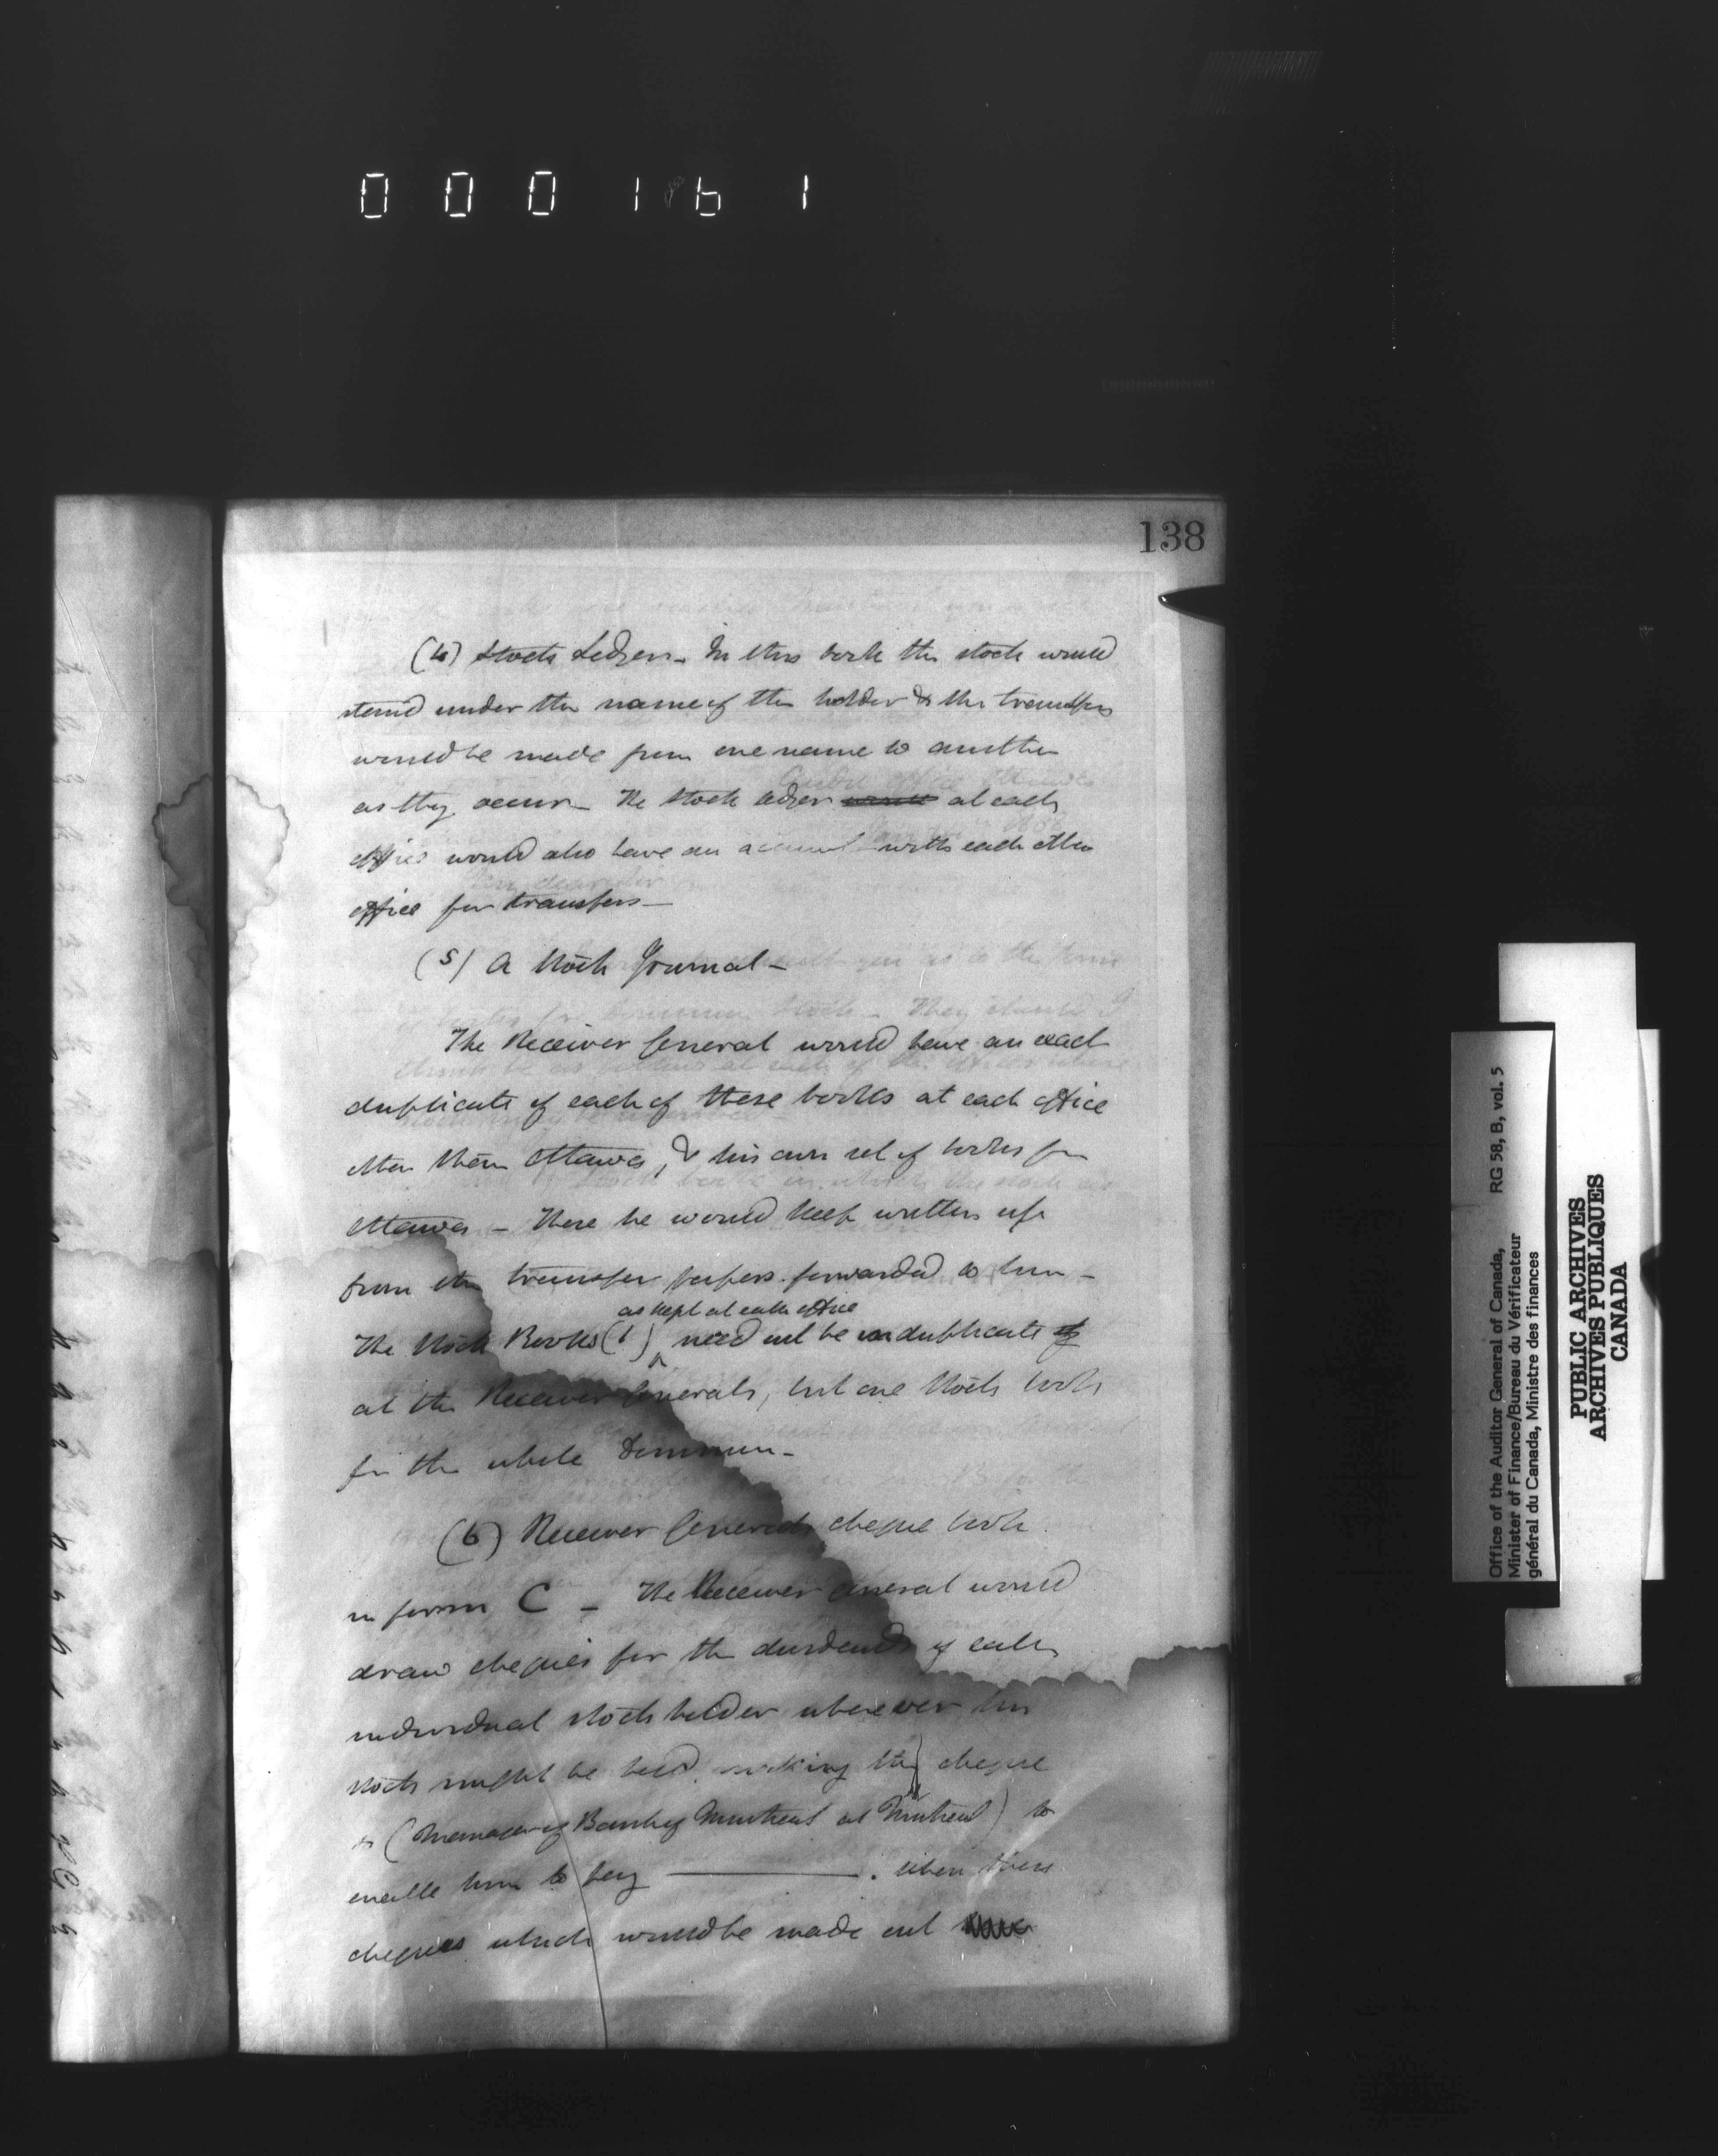 000161
138
(4) Stock Ledger - In this book the stock would
stand under the name of the holder & the transfers
would be made from one name to another
as they occur - The Stock ledger at each
office would also have an account with each other
office for transfers -
(5) A Stock Journal -
The Receiver General would have an exact
duplicate of each of these books at each office
other than Ottawa, & his own set of books for
Ottawa - These he would keep written up
from the transfer papers forwarded to him -
as kept at each office
The Stock Books (1) need not be in duplicate of
at the Receiver Generals, but one Stock book
for the whole Dominion -
(6) Receiver Generals cheque book
in form C - The Receiver General would
draw cheques for the dividends of each
individual stock holder wherever his
stock might be held making the cheque
to (Manager of Bank of Montreal at Montreal) to
enable him to pay ———. When these
cheques which would be made out
Office of the Auditor General of Canada, RG 58, B, vol. 5
Minister of Finance/Bureau du Vérificateur
général du Canada, Ministre des finances
PUBLIC ARCHIVES
ARCHIVES PUBLIQUES
CANADA